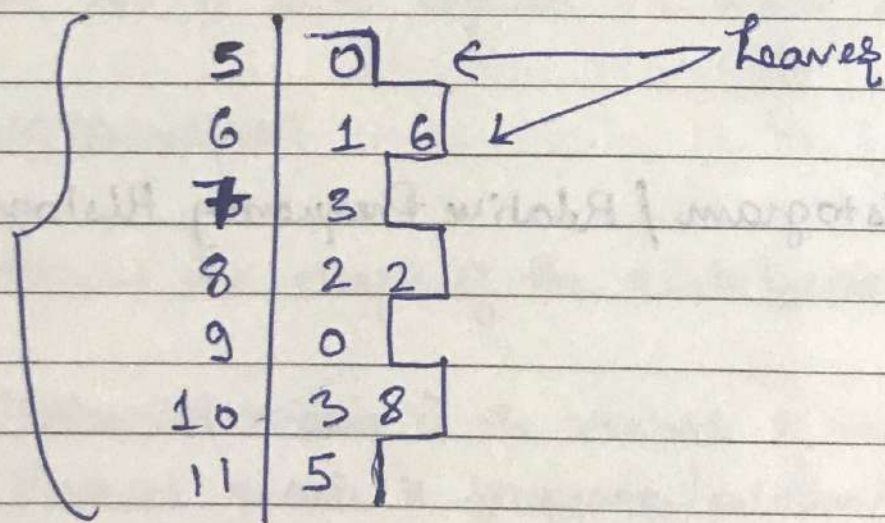 5 | 0 Leaves
6 | 1 6
7 | 3
8 | 2 2
9 | 0
10 | 3 8
11 | 5